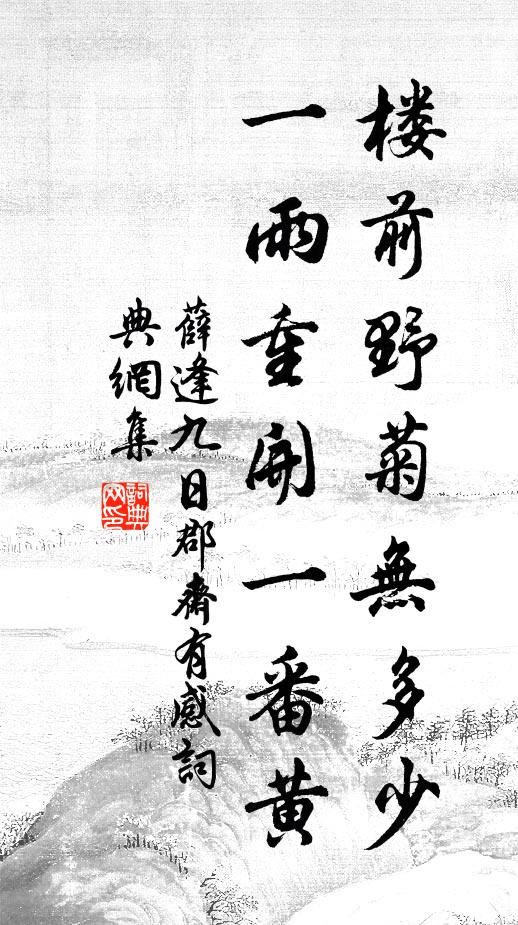 楼前野菊無多少
一雨重開一番黄
薛逢九日郡齋有感詞
典網集
詞典
网印